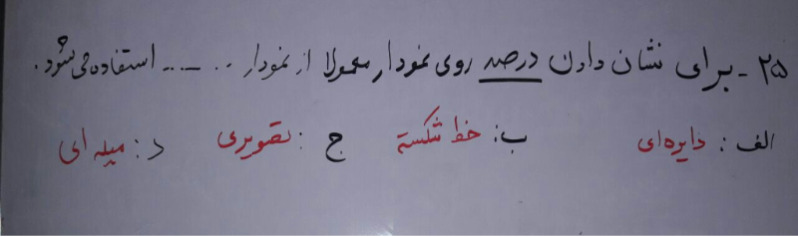 ۲۵ - برای نشان دادن درصد روی نمودار معمولا از نمودار ..... استفاده می شود.
الف : دایره ای ب: خط شکسته ج : تصویری د : میله ای